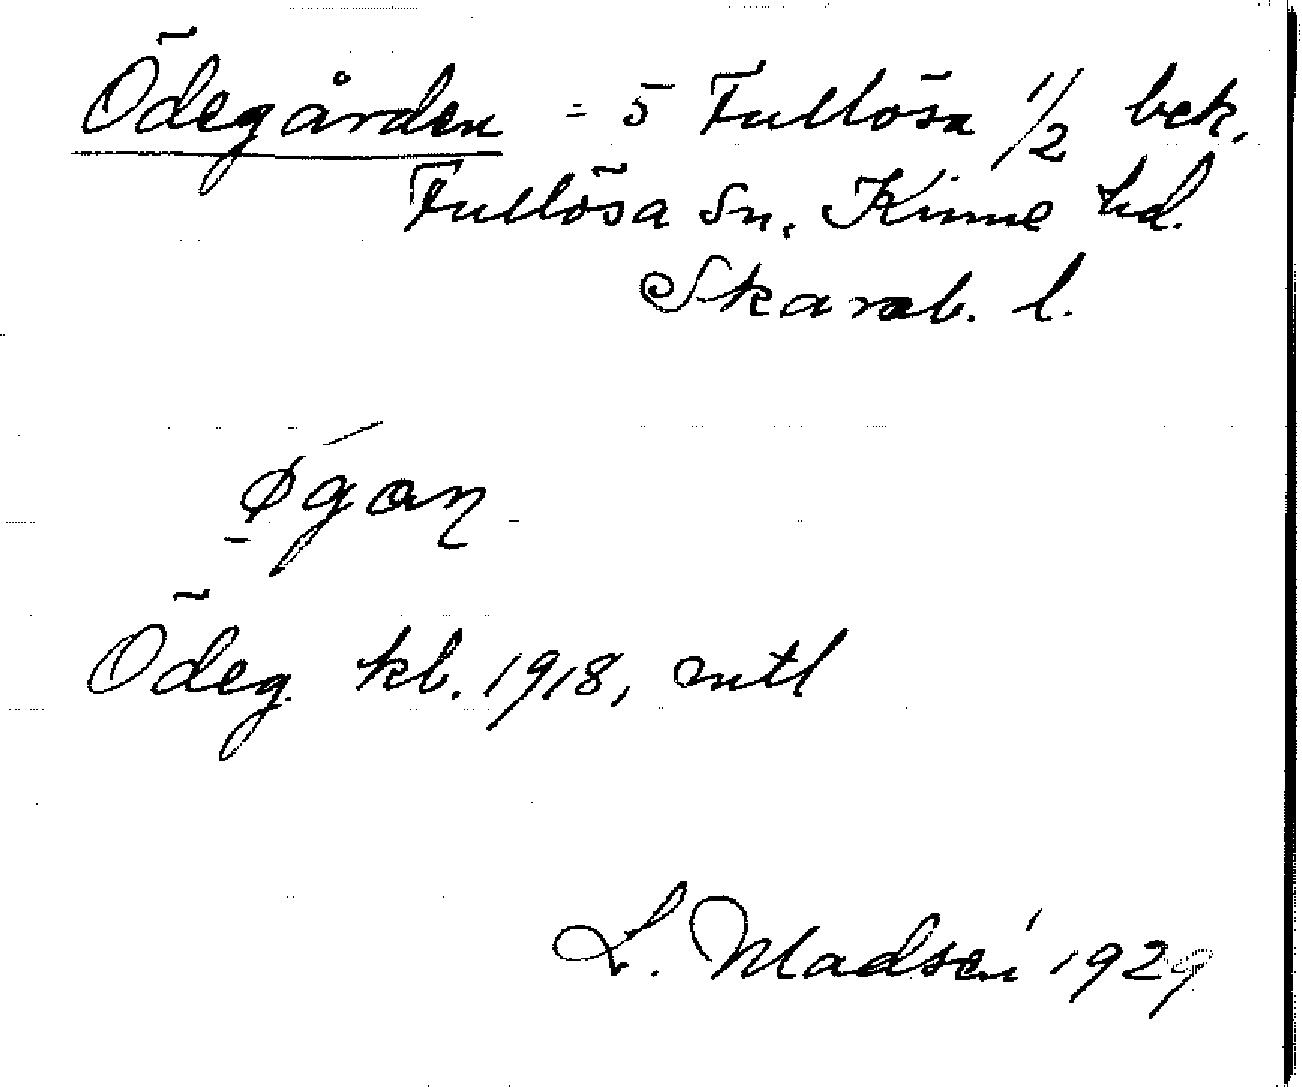 Ödegården = 5 Fullösa 1/2 bek.
Fullösa Sn. Kinne hd.
Skarab. l.
øgan
Ödeg. kb. 1918, mtl
L. Madsén 1929